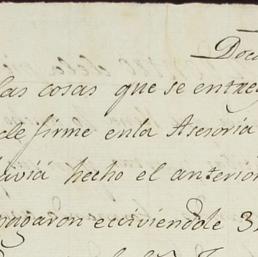 Doc
las cosas que se entre
de firme enla Asesoria
havia hecho el anterior
pagaron eciviendole 3